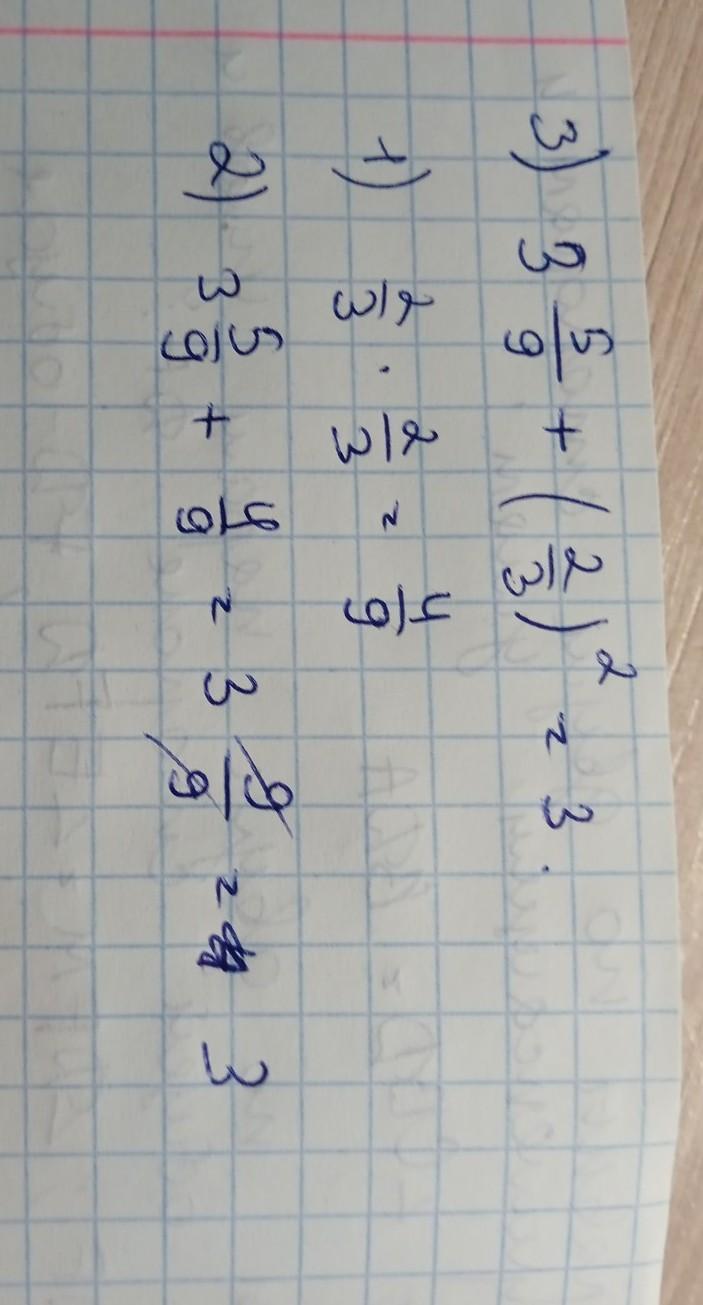 3) 3 5/9 + (2/3)² = 3.
1) 2/3 · 2/3 = 4/9
2) 3 5/9 + 4/9 = 3 9/9 = 3